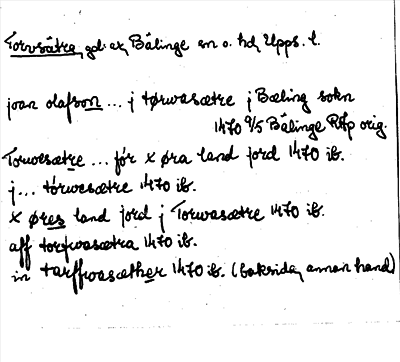 Torvsätra, gd. ex, Bälinge sn o. hd, Upps. l.
joan olafson ... j tørwasætre j Bæling sokn
1470 9/5 Bälinge RAp orig.
Torwesætre ... fór x øra land jord 1470 ib.
j ... tórwesætre 1470 ib.
x øres land jord j Torwasætre 1470 ib.
aff torffwasætra 1470 ib.
in tarffwasæther 1470 ib. (baksida, annan hand)